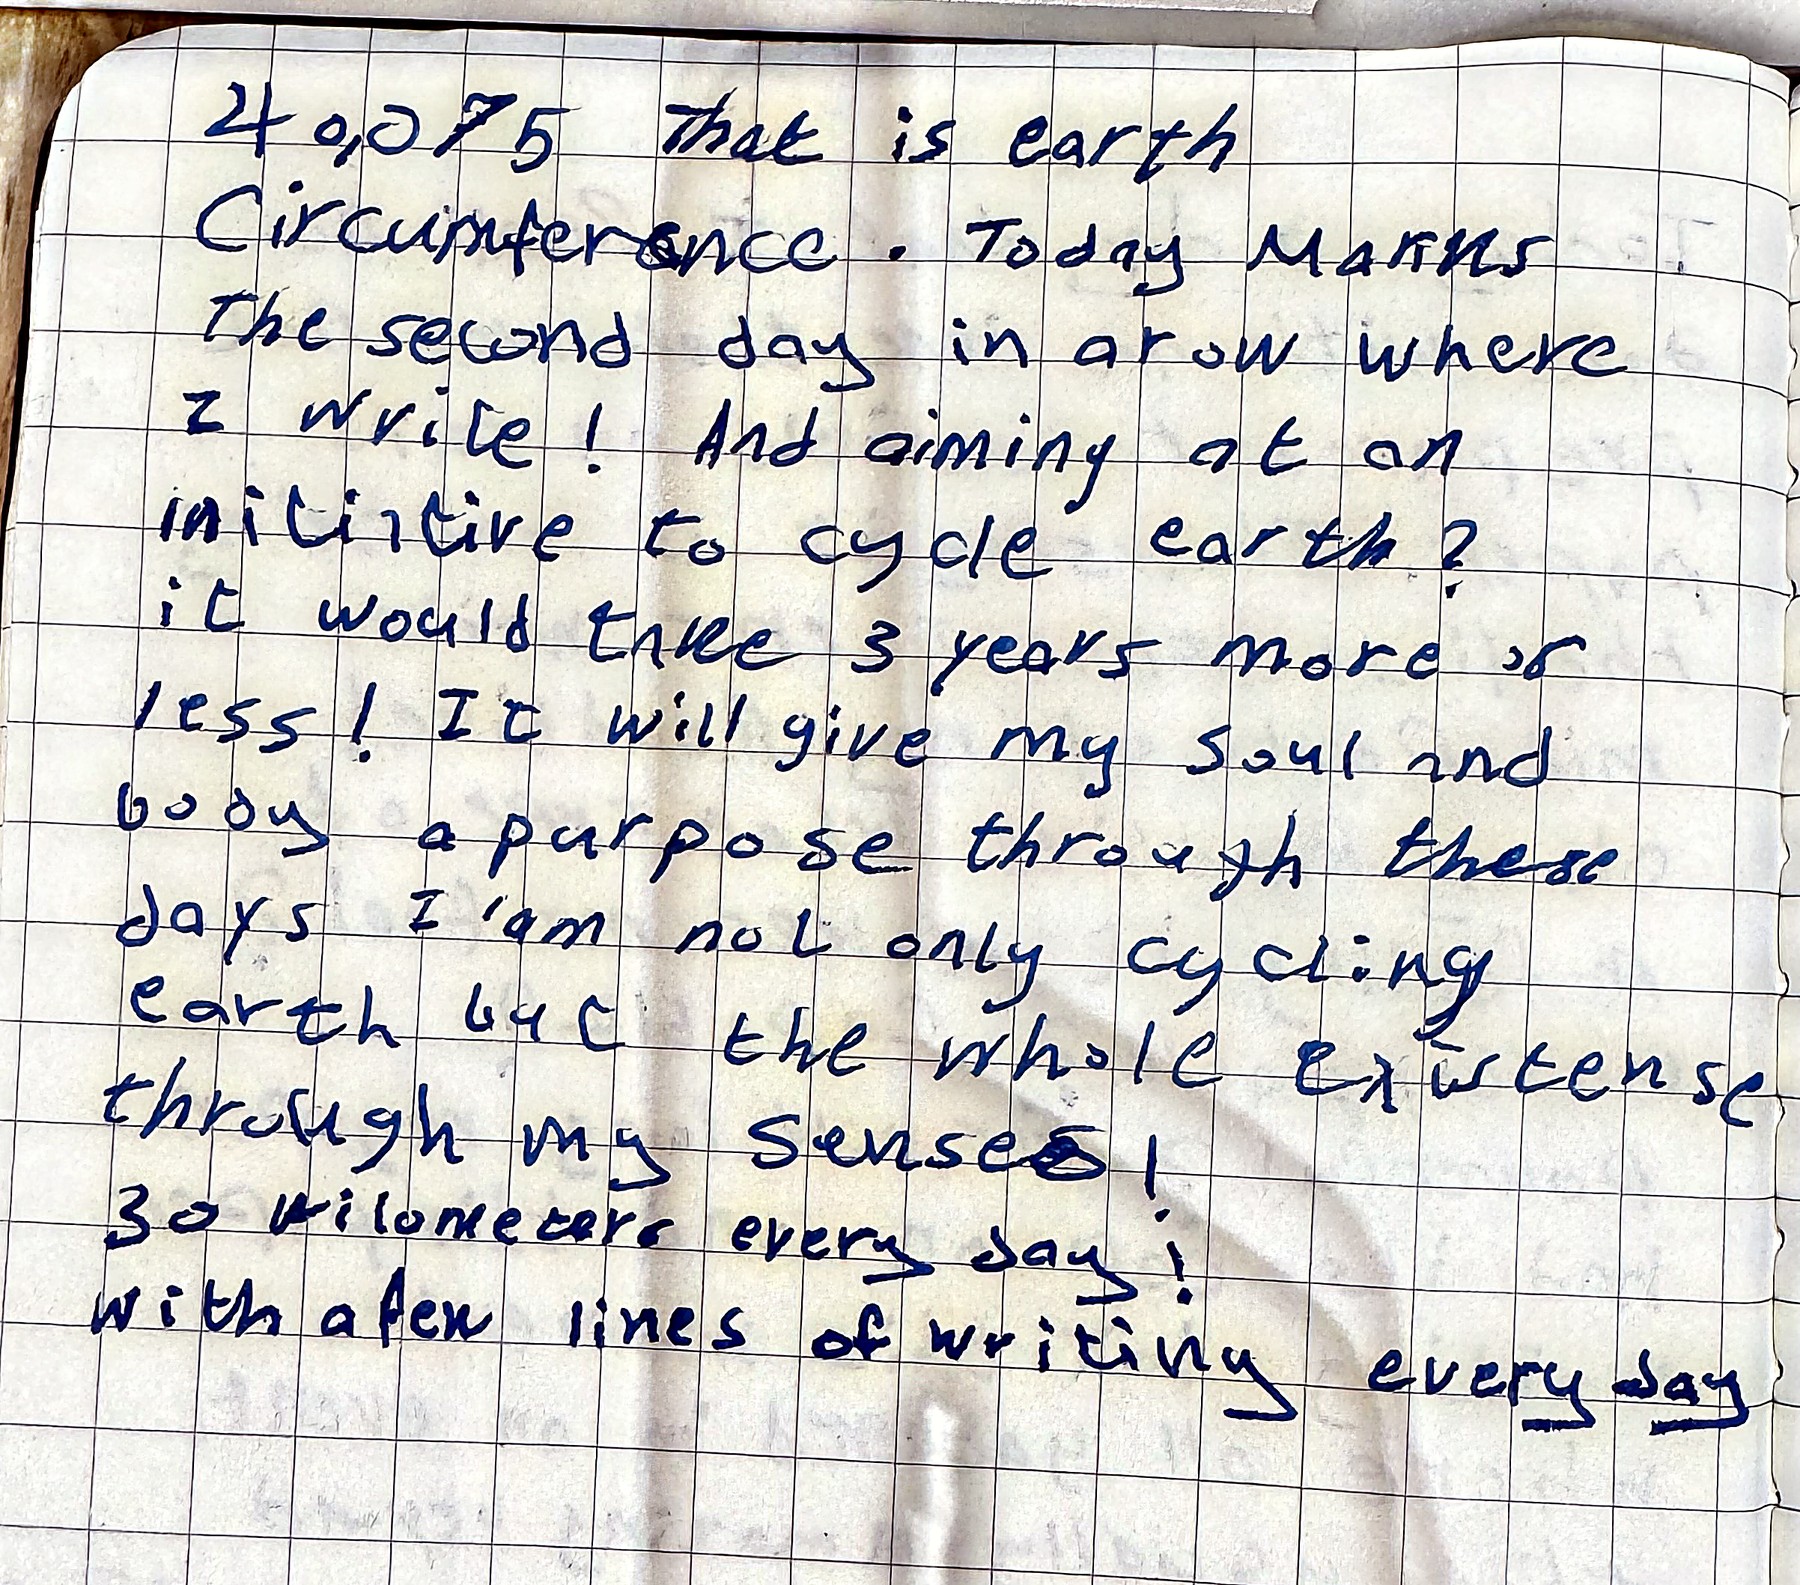 40,075 That is earth
Circumference. Today Marks
The second day in a row where
I write! And aiming at an
initiative to cycle earth?
it would take 3 years more or
less! It will give my soul and
body a purpose through these
days I'am not only cycling
earth but the whole existense
through my senses!
30 kilometers every day!
with a few lines of writing every day